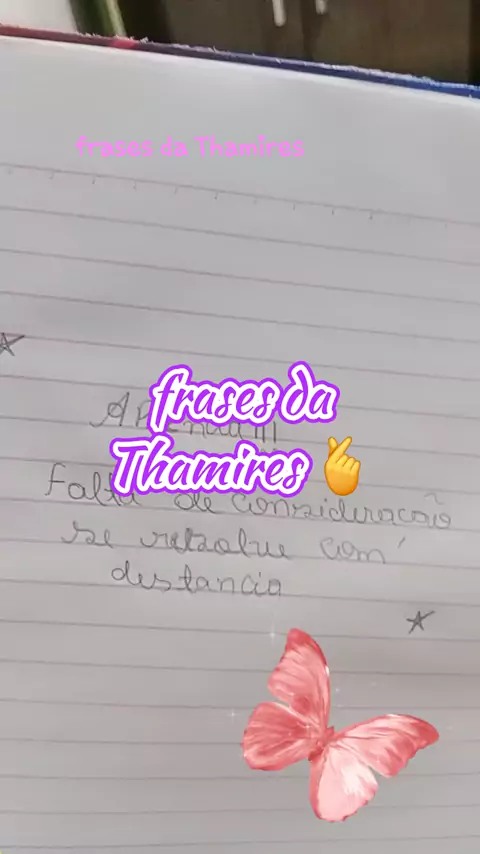 frases da Thamires
frases da
Thamires 🫰
Aprenda!!!
Falta de consideração
se resolve com
distancia